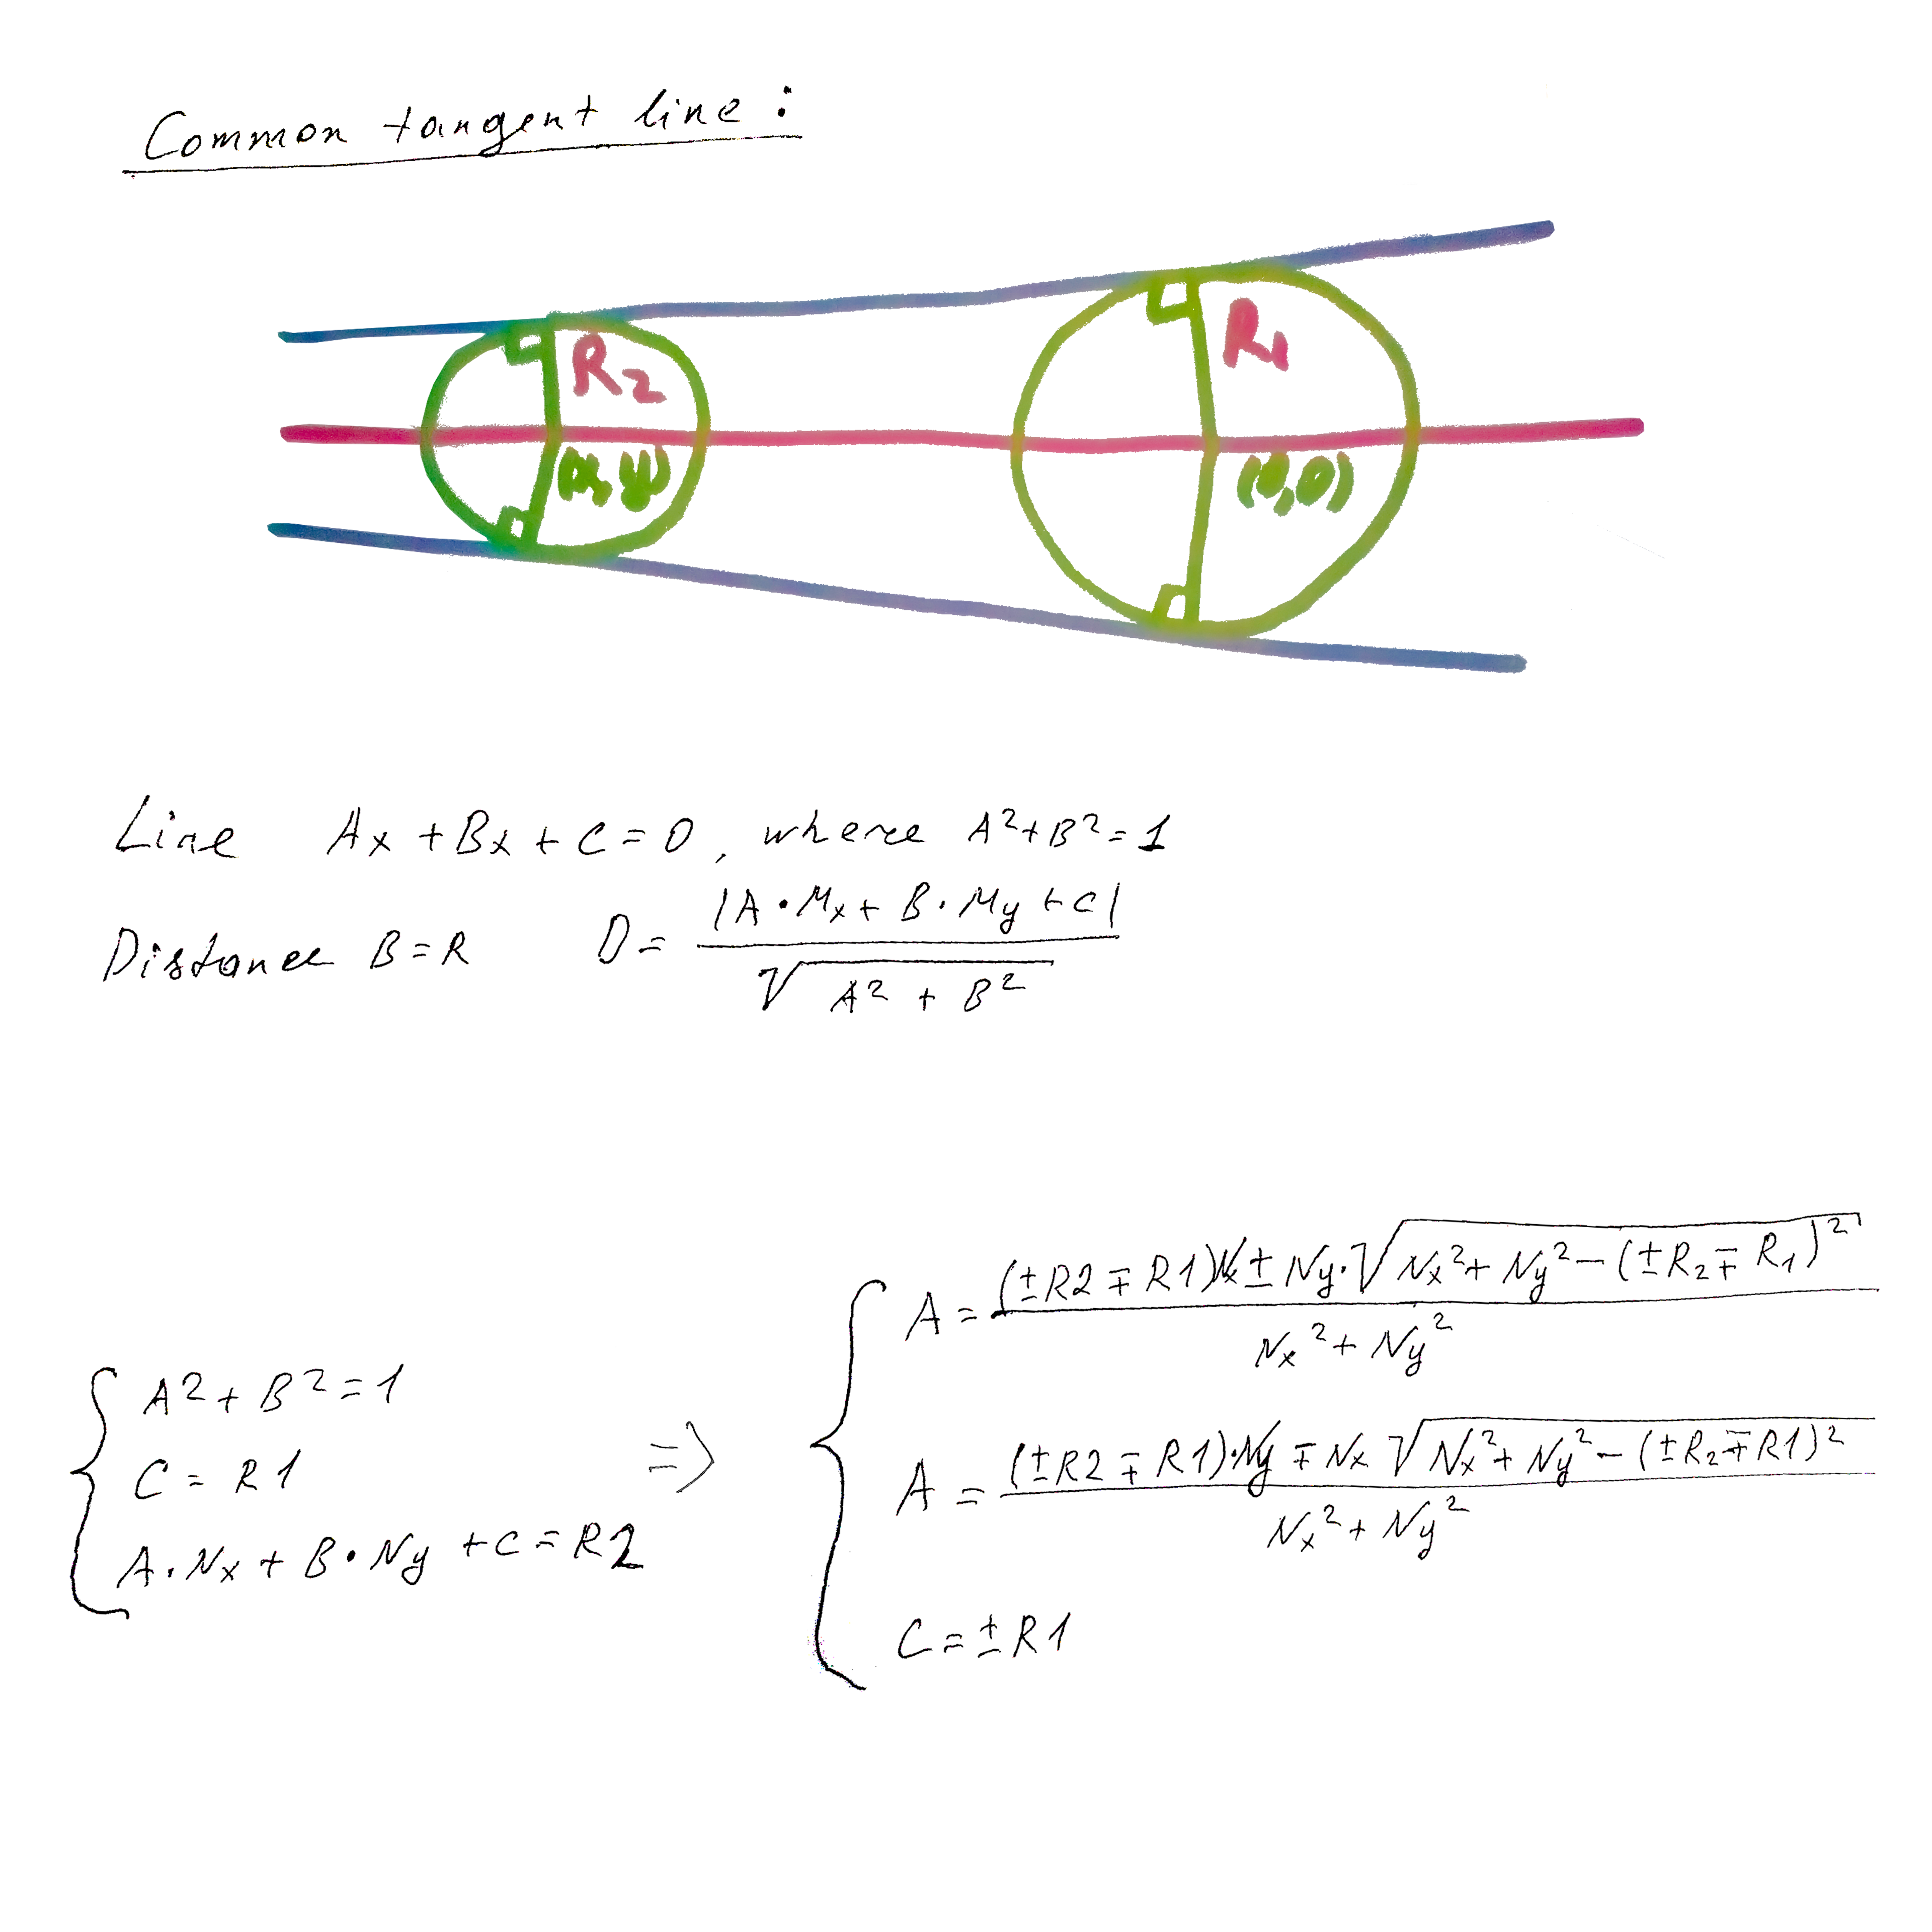 Common tangent line:
R₂
R₁
(x, y)
(0,0)
Line Ax + Bx + C = 0, where A² + B² = 1
Distance B = R D = |A · Mx + B · My + C| / √(A² + B²)
A² + B² = 1
C = R1
A · Nx + B · Ny + C = R2
=>
A = ((±R2 ∓ R1)Nx ± Ny · √(Nx² + Ny² − (±R₂ ∓ R₁)²)) / (Nx² + Ny²)
A = ((±R2 ∓ R1) · Ny ∓ Nx √(Nx² + Ny² − (±R₂ ∓ R1)²)) / (Nx² + Ny²)
C = ±R1